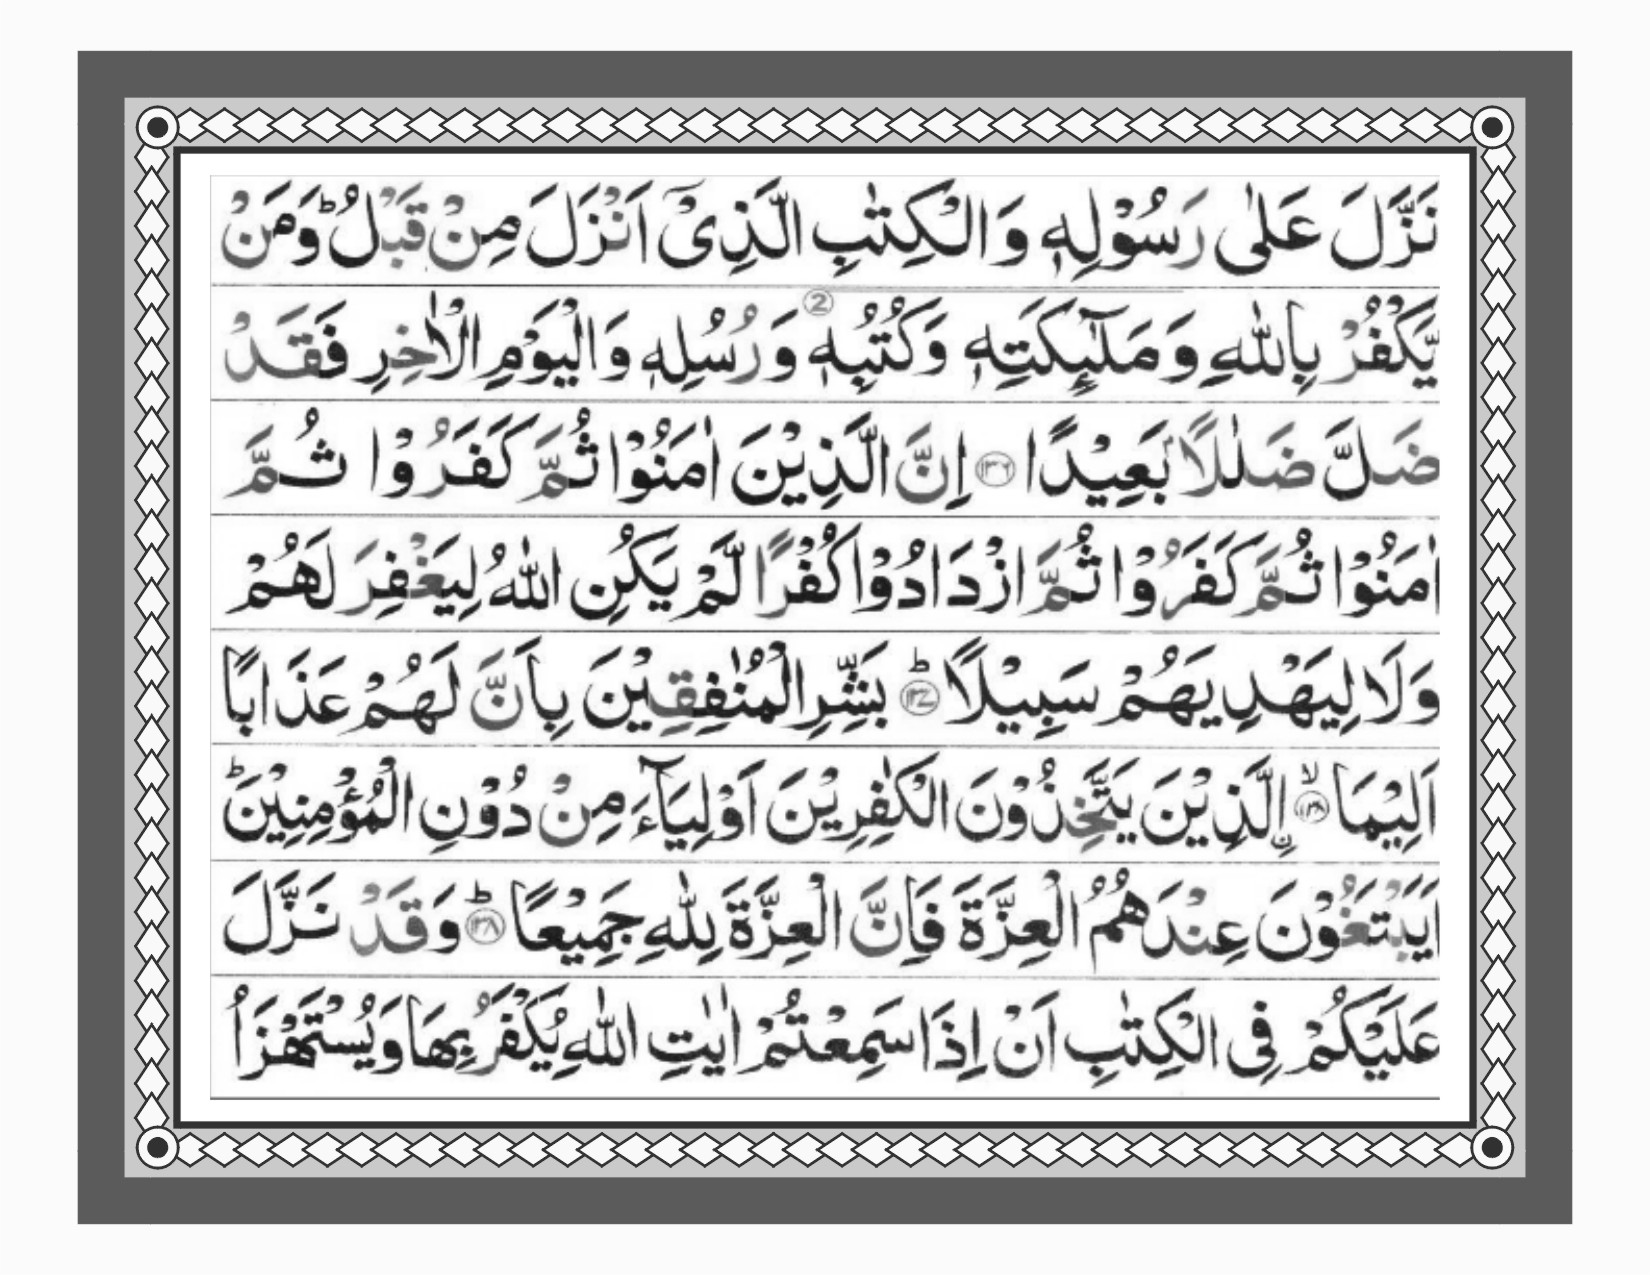 نَزَّلَ عَلٰى رَسُوْلِهٖ وَالْكِتٰبِ الَّذِىْۤ اَنْزَلَ مِنْ قَبْلُ ؕ وَمَنْ
يَّكْفُرْ بِاللّٰهِ وَ مَلٰٓئِكَتِهٖ وَكُتُبِهٖ ② وَرُسُلِهٖ وَالْيَوْمِ الْاٰخِرِ فَقَدْ
ضَلَّ ضَلٰلًاۢ بَعِيْدًا ﴿۱۳۶﴾ اِنَّ الَّذِيْنَ اٰمَنُوْا ثُمَّ كَفَرُوْا ثُمَّ
اٰمَنُوْا ثُمَّ كَفَرُوْا ثُمَّ ازْدَادُوْا كُفْرًا لَّمْ يَكُنِ اللّٰهُ لِيَغْفِرَ لَهُمْ
وَلَا لِيَهْدِيَهُمْ سَبِيْلًا ؕ﴿۱۳۷﴾ بَشِّرِ الْمُنٰفِقِيْنَ بِاَنَّ لَهُمْ عَذَابًا
اَلِيْمَا ۙ﴿۱۳۸﴾ اۨلَّذِيْنَ يَتَّخِذُوْنَ الْكٰفِرِيْنَ اَوْلِيَآءَ مِنْ دُوْنِ الْمُؤْمِنِيْنَ ؕ
اَيَبْتَغُوْنَ عِنْدَهُمُ الْعِزَّةَ فَاِنَّ الْعِزَّةَ لِلّٰهِ جَمِيْعًا ؕ﴿۱۳۸﴾ وَقَدْ نَزَّلَ
عَلَيْكُمْ فِى الْكِتٰبِ اَنْ اِذَا سَمِعْتُمْ اٰيٰتِ اللّٰهِ يُكْفَرُ بِهَا وَيُسْتَهْزَاُ